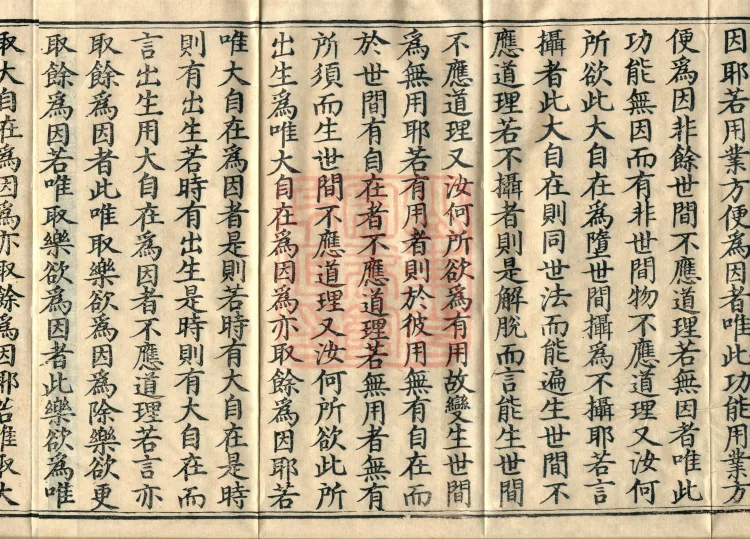 因耶若用業方便為因者唯此功能用業方
便為因非餘世間不應道理若無因者唯此
功能無因而有非世間物不應道理又汝何
所欲此大自在為墮世間攝為不攝耶若言
攝者此大自在則同世法而能遍生世間不
應道理若不攝者則是解脫而言能生世間
不應道理又汝何所欲為有用故變生世間
為無用耶若有用者則於彼用無有自在而
於世間有自在者不應道理若無用者無有
所須而生世間不應道理又汝何所欲此所
出生為唯大自在為因為亦取餘為因耶若
唯大自在為因者是則若時有大自在是時
則有出生若時有出生是時則有大自在而
言出生用大自在為因者不應道理若言亦
取餘為因者此唯取樂欲為因為除樂欲更
取餘為因若唯取樂欲為因者此樂欲為唯
取大自在為因為亦取餘為因耶若唯取大